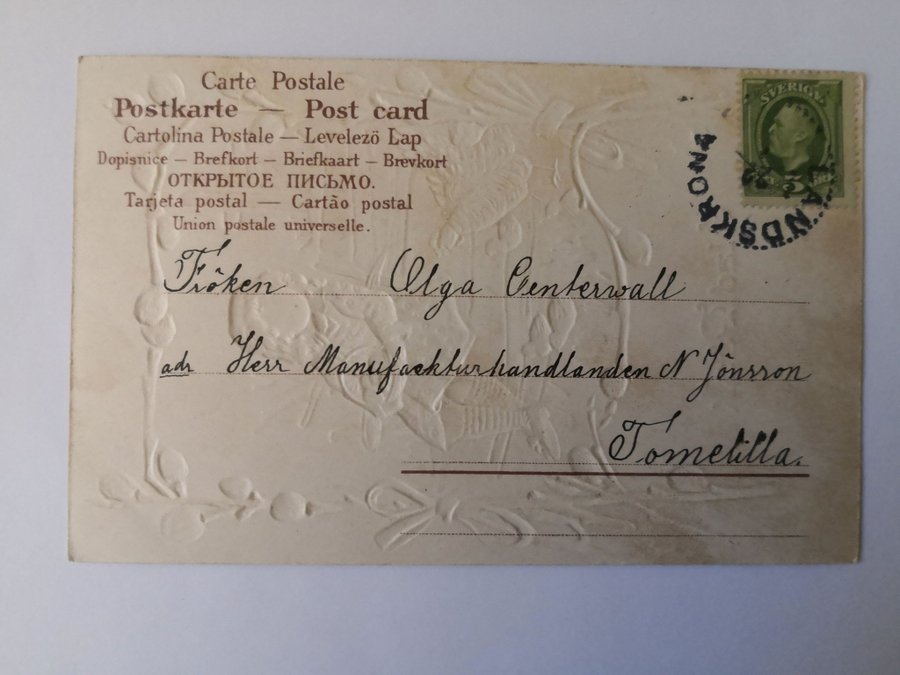 Carte Postale
Postkarte — Post card
Cartolina Postale — Levelezö Lap
Dopisnice — Brefkort — Briefkaart — Brevkort
ОТКРЫТОЕ ПИСЬМО.
Tarjeta postal — Cartão postal
Union postale universelle.
SVERIGE
5
LANDSKRONA
Fröken Olga Centerwall
adr Herr Manufackturhandlanden N Jönsson
Tomelilla.